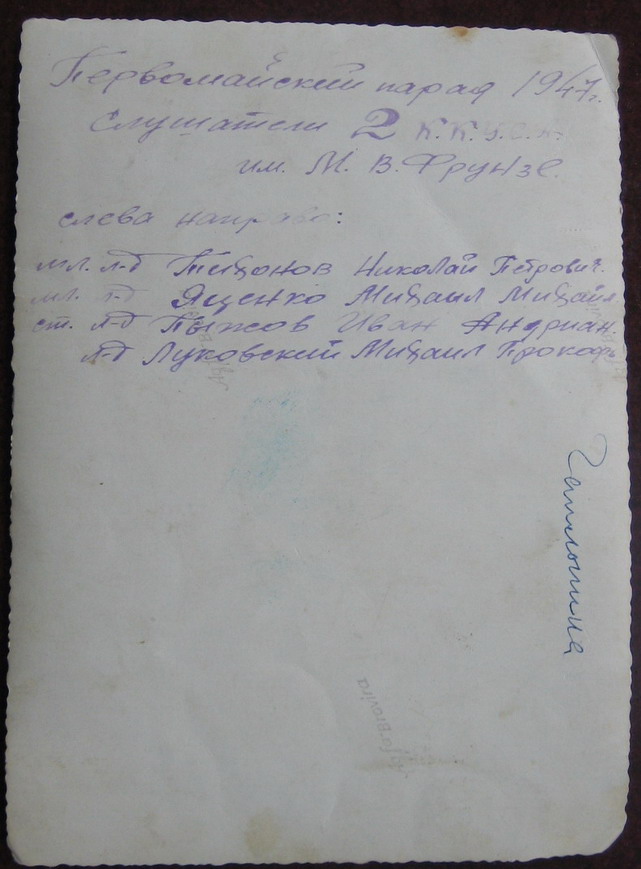 Первомайский парад 1947г.
Слушатели 2 К.К.У.С.К.
им. М. В. Фрунзе.
слева направо:
мл. л-т Тихонов Николай Петрович.
мл. л-т Яценко Михаил Михайл
ст. л-т Пыжов Иван Андриан.
л-т Луковский Михаил Прокофь